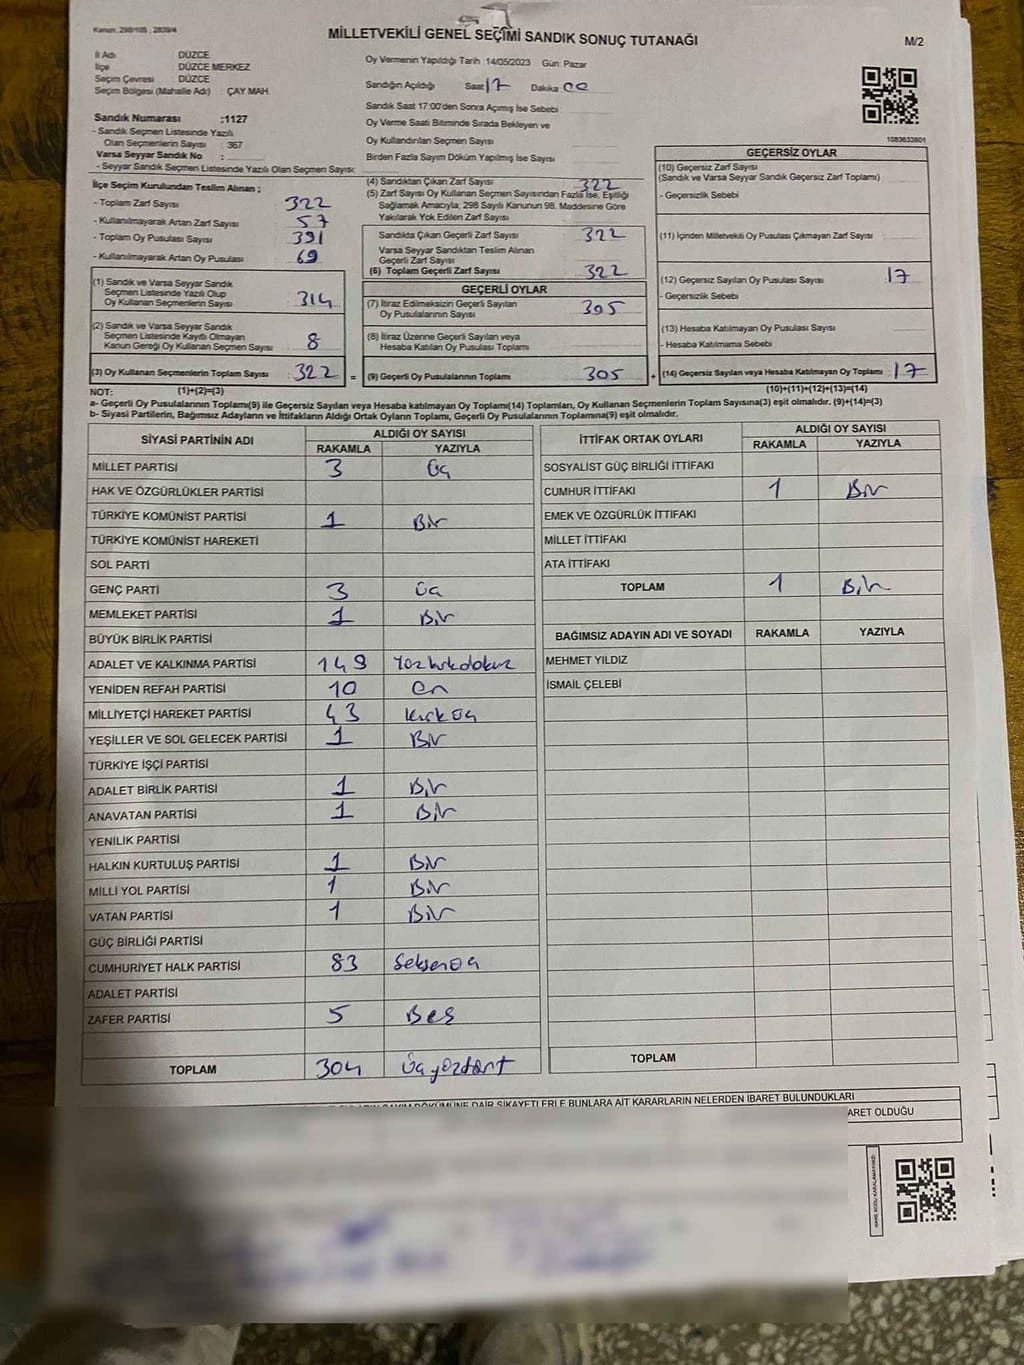 Kanun. 298/105 , 2839/4
MİLLETVEKİLİ GENEL SEÇİMİ SANDIK SONUÇ TUTANAĞI
M/2
İl Adı DÜZCE
İlçe : DÜZCE MERKEZ
Seçim Çevresi : DÜZCE
Seçim Bölgesi (Mahalle Adı) : ÇAY MAH.
Sandık Numarası :1127
- Sandık Seçmen Listesinde Yazılı
Olan Seçmenlerin Sayısı : 367
Varsa Seyyar Sandık No :
- Seyyar Sandık Seçmen Listesinde Yazılı Olan Seçmen Sayısı:
Oy Vermenin Yapıldığı Tarih :14/05/2023 Gün: Pazar
Sandığın Açıldığı Saat 17 Dakika 00
Sandık Saat 17:00'den Sonra Açımış İse Sebebi
Oy Verme Saati Bitiminde Sırada Bekleyen ve
Oy Kullandırılan Seçmen Sayısı
Birden Fazla Sayım Döküm Yapılmış İse Sayısı
1083633801
İlçe Seçim Kurulundan Teslim Alınan ;
- Toplam Zarf Sayısı 322
- Kullanılmayarak Artan Zarf Sayısı 57
- Toplam Oy Pusulası Sayısı 391
- Kullanılmayarak Artan Oy Pusulası 69
(1) Sandık ve Varsa Seyyar Sandık
Seçmen Listesinde Yazılı Olup
Oy Kullanan Seçmenlerin Sayısı 314
(2) Sandık ve Varsa Seyyar Sandık
Seçmen Listesinde Kayıtlı Olmayan
Kanun Gereği Oy Kullanan Seçmen Sayısı 8
(3) Oy Kullanan Seçmenlerin Toplam Sayısı 322 =
(4) Sandıktan Çıkan Zarf Sayısı 322
(5) Zarf Sayısı Oy Kullanan Seçmen Sayısından Fazla İse, Eşitliği
Sağlamak Amacıyla, 298 Sayılı Kanunun 98. Maddesine Göre
Yakılarak Yok Edilen Zarf Sayısı
Sandıkta Çıkan Geçerli Zarf Sayısı 322
Varsa Seyyar Sandıktan Teslim Alınan
Geçerli Zarf Sayısı
(6) Toplam Geçerli Zarf Sayısı 322
GEÇERLİ OYLAR
(7) İtiraz Edilmeksizin Geçerli Sayılan
Oy Pusulalarının Sayısı 305
(8) İtiraz Üzerine Geçerli Sayılan veya
Hesaba Katılan Oy Pusulası Toplamı
(9) Geçerli Oy Pusulalarının Toplamı 305 +
GEÇERSİZ OYLAR
(10) Geçersiz Zarf Sayısı
(Sandık ve Varsa Seyyar Sandık Geçersiz Zarf Toplamı)
- Geçersizlik Sebebi
(11) İçinden Milletvekili Oy Pusulası Çıkmayan Zarf Sayısı
(12) Geçersiz Sayılan Oy Pusulası Sayısı 17
- Geçersizlik Sebebi
(13) Hesaba Katılmayan Oy Pusulası Sayısı
- Hesaba Katılmama Sebebi
(14) Geçersiz Sayılan veya Hesaba Katılmayan Oy Toplamı 17
NOT: (1)+(2)=(3) (10)+(11)+(12)+(13)=(14)
a- Geçerli Oy Pusulalarının Toplamı(9) ile Geçersiz Sayılan veya Hesaba katılmayan Oy Toplamı(14) Toplamları, Oy Kullanan Seçmenlerin Toplam Sayısına(3) eşit olmalıdır. (9)+(14)=(3)
b- Siyasi Partilerin, Bağımsız Adayların ve İttifakların Aldığı Ortak Oyların Toplamı, Geçerli Oy Pusulalarının Toplamına(9) eşit olmalıdır.
SİYASİ PARTİNİN ADI ALDIĞI OY SAYISI
RAKAMLA YAZIYLA
MİLLET PARTİSİ 3 Üç
HAK VE ÖZGÜRLÜKLER PARTİSİ
TÜRKİYE KOMÜNİST PARTİSİ 1 Bir
TÜRKİYE KOMÜNİST HAREKETİ
SOL PARTİ
GENÇ PARTİ 3 Üç
MEMLEKET PARTİSİ 1 Bir
BÜYÜK BİRLİK PARTİSİ
ADALET VE KALKINMA PARTİSİ 149 Yüzkırkdokuz
YENİDEN REFAH PARTİSİ 10 On
MİLLİYETÇİ HAREKET PARTİSİ 43 Kırküç
YEŞİLLER VE SOL GELECEK PARTİSİ 1 Bir
TÜRKİYE İŞÇİ PARTİSİ
ADALET BİRLİK PARTİSİ 1 Bir
ANAVATAN PARTİSİ 1 Bir
YENİLİK PARTİSİ
HALKIN KURTULUŞ PARTİSİ 1 Bir
MİLLİ YOL PARTİSİ 1 Bir
VATAN PARTİSİ 1 Bir
GÜÇ BİRLİĞİ PARTİSİ
CUMHURİYET HALK PARTİSİ 83 Seksenüç
ADALET PARTİSİ
ZAFER PARTİSİ 5 Beş
TOPLAM 304 Üçyüzdört
İTTİFAK ORTAK OYLARI ALDIĞI OY SAYISI
RAKAMLA YAZIYLA
SOSYALİST GÜÇ BİRLİĞİ İTTİFAKI
CUMHUR İTTİFAKI 1 Bir
EMEK VE ÖZGÜRLÜK İTTİFAKI
MİLLET İTTİFAKI
ATA İTTİFAKI
TOPLAM 1 Bir
BAĞIMSIZ ADAYIN ADI VE SOYADI RAKAMLA YAZIYLA
MEHMET YILDIZ
İSMAİL ÇELEBİ
TOPLAM
DÖKÜMÜNE DAİR ŞİKAYETLERLE BUNLARA AİT KARARLARIN NELERDEN İBARET BULUNDUKLARI
ARET OLDUĞU